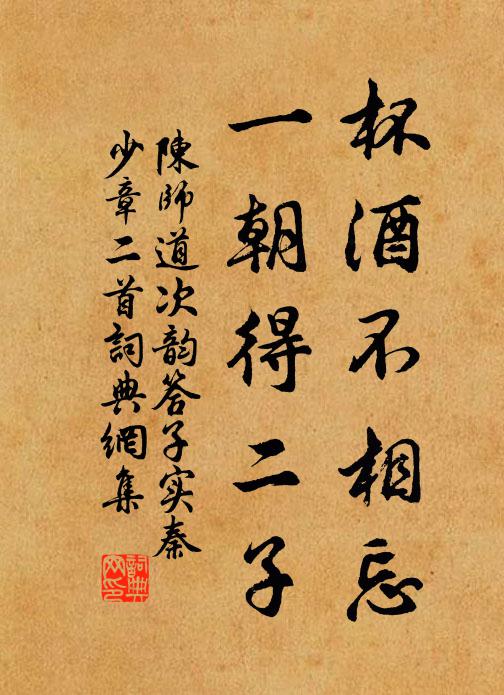 杯酒不相忘
一朝得二子
陳師道次韵答子实秦
少章二首詞典網集
詞典
网印